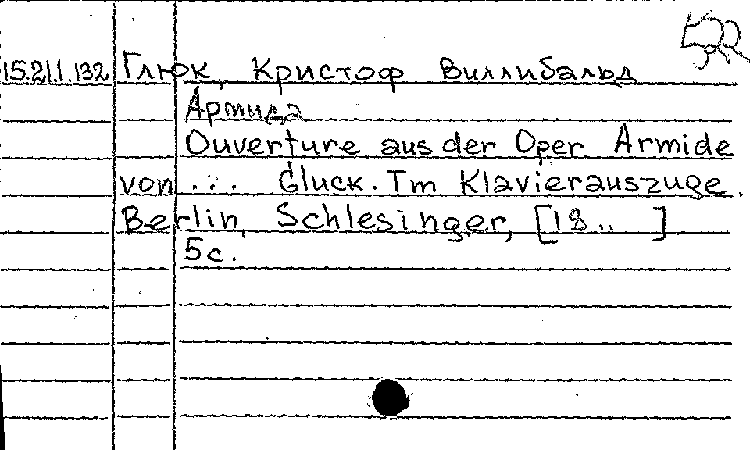 15.211.132 Глюк, Кристоф Виллибальд
Армида
Ouverture aus der Oper Armide
von ... Gluck. Im Klavierauszuge.
Berlin, Schlesinger, [18.. ]
5 c.